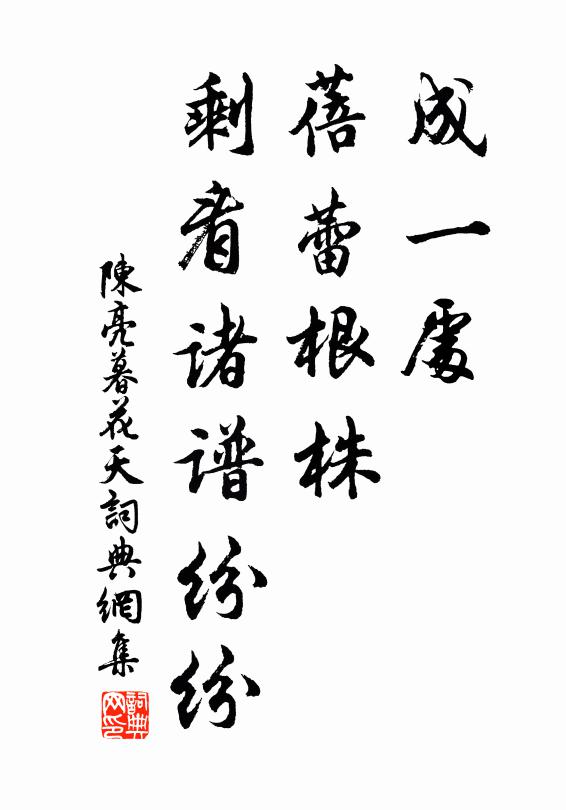 成一處
蓓蕾根株
剩看諸譜紛紛
陳亮暮花天詞典網集
詞典网印